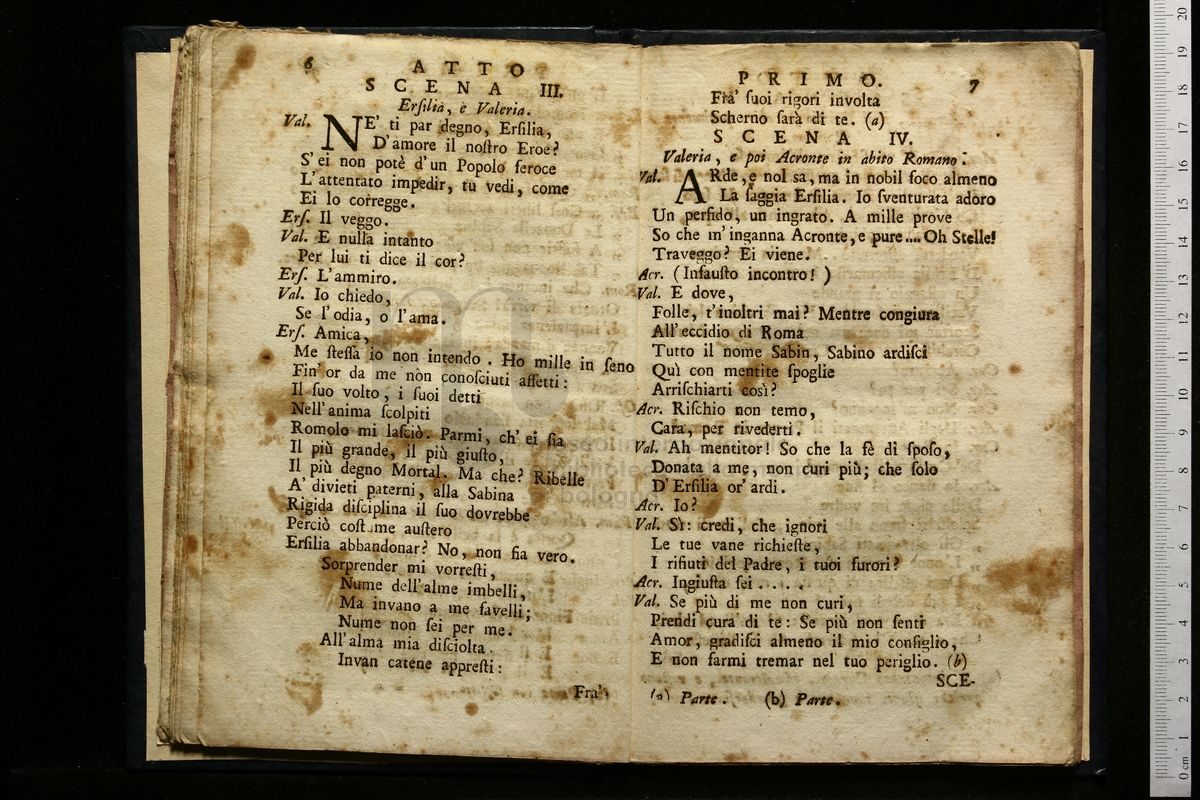 6
ATTO
SCENA III.
Erſilia, e Valeria.
Val. NE' ti par degno, Erſilia,
D'amore il noſtro Eroe?
S'ei non potè d'un Popolo feroce
L'attentato impedir, tu vedi, come
Ei lo corregge.
Erſ. Il veggo.
Val. E nulla intanto
Per lui ti dice il cor?
Erſ. L'ammiro.
Val. Io chiedo,
Se l'odia, o l'ama.
Erſ. Amica,
Me ſteſſa io non intendo. Ho mille in ſeno
Fin' or da me non conoſciuti affetti:
Il ſuo volto, i ſuoi detti
Nell'anima ſcolpiti
Romolo mi laſciò. Parmi, ch'ei ſia
Il più grande, il più giuſto,
Il più degno Mortal. Ma che? Ribelle
A' divieti paterni, alla Sabina
Rigida diſciplina il ſuo dovrebbe
Perciò coſtume auſtero
Erſilia abbandonar? No, non fia vero.
Sorprender mi vorreſti,
Nume dell'alme imbelli,
Ma invano a me favelli;
Nume non ſei per me.
All'alma mia diſciolta
Invan catene appreſti:
Fra'
PRIMO.
7
Fra' ſuoi rigori involta
Scherno ſarà di te. (a)
SCENA IV.
Valeria, e poi Acronte in abito Romano.
Val. ARde, e nol sa, ma in nobil foco almeno
La ſaggia Erſilia. Io ſventurata adoro
Un perfido, un ingrato. A mille prove
So che m'inganna Acronte, e pure.... Oh Stelle!
Traveggo? Ei viene.
Acr. (Infauſto incontro!)
Val. E dove,
Folle, t'inoltri mai? Mentre congiura
All'eccidio di Roma
Tutto il nome Sabin, Sabino ardiſci
Quì con mentite ſpoglie
Arriſchiarti così?
Acr. Riſchio non temo,
Cara, per rivederti.
Val. Ah mentitor! So che la fè di ſpoſo,
Donata a me, non curi più; che ſolo
D'Erſilia or' ardi.
Acr. Io?
Val. Sì: credi, che ignori
Le tue vane richieſte,
I rifiuti del Padre, i tuoi furori?
Acr. Ingiuſta ſei.....
Val. Se più di me non curi,
Prendi cura di te: Se più non ſenti
Amor, gradiſci almeno il mio conſiglio,
E non farmi tremar nel tuo periglio. (b)
SCE-
(a) Parte. (b) Parte.